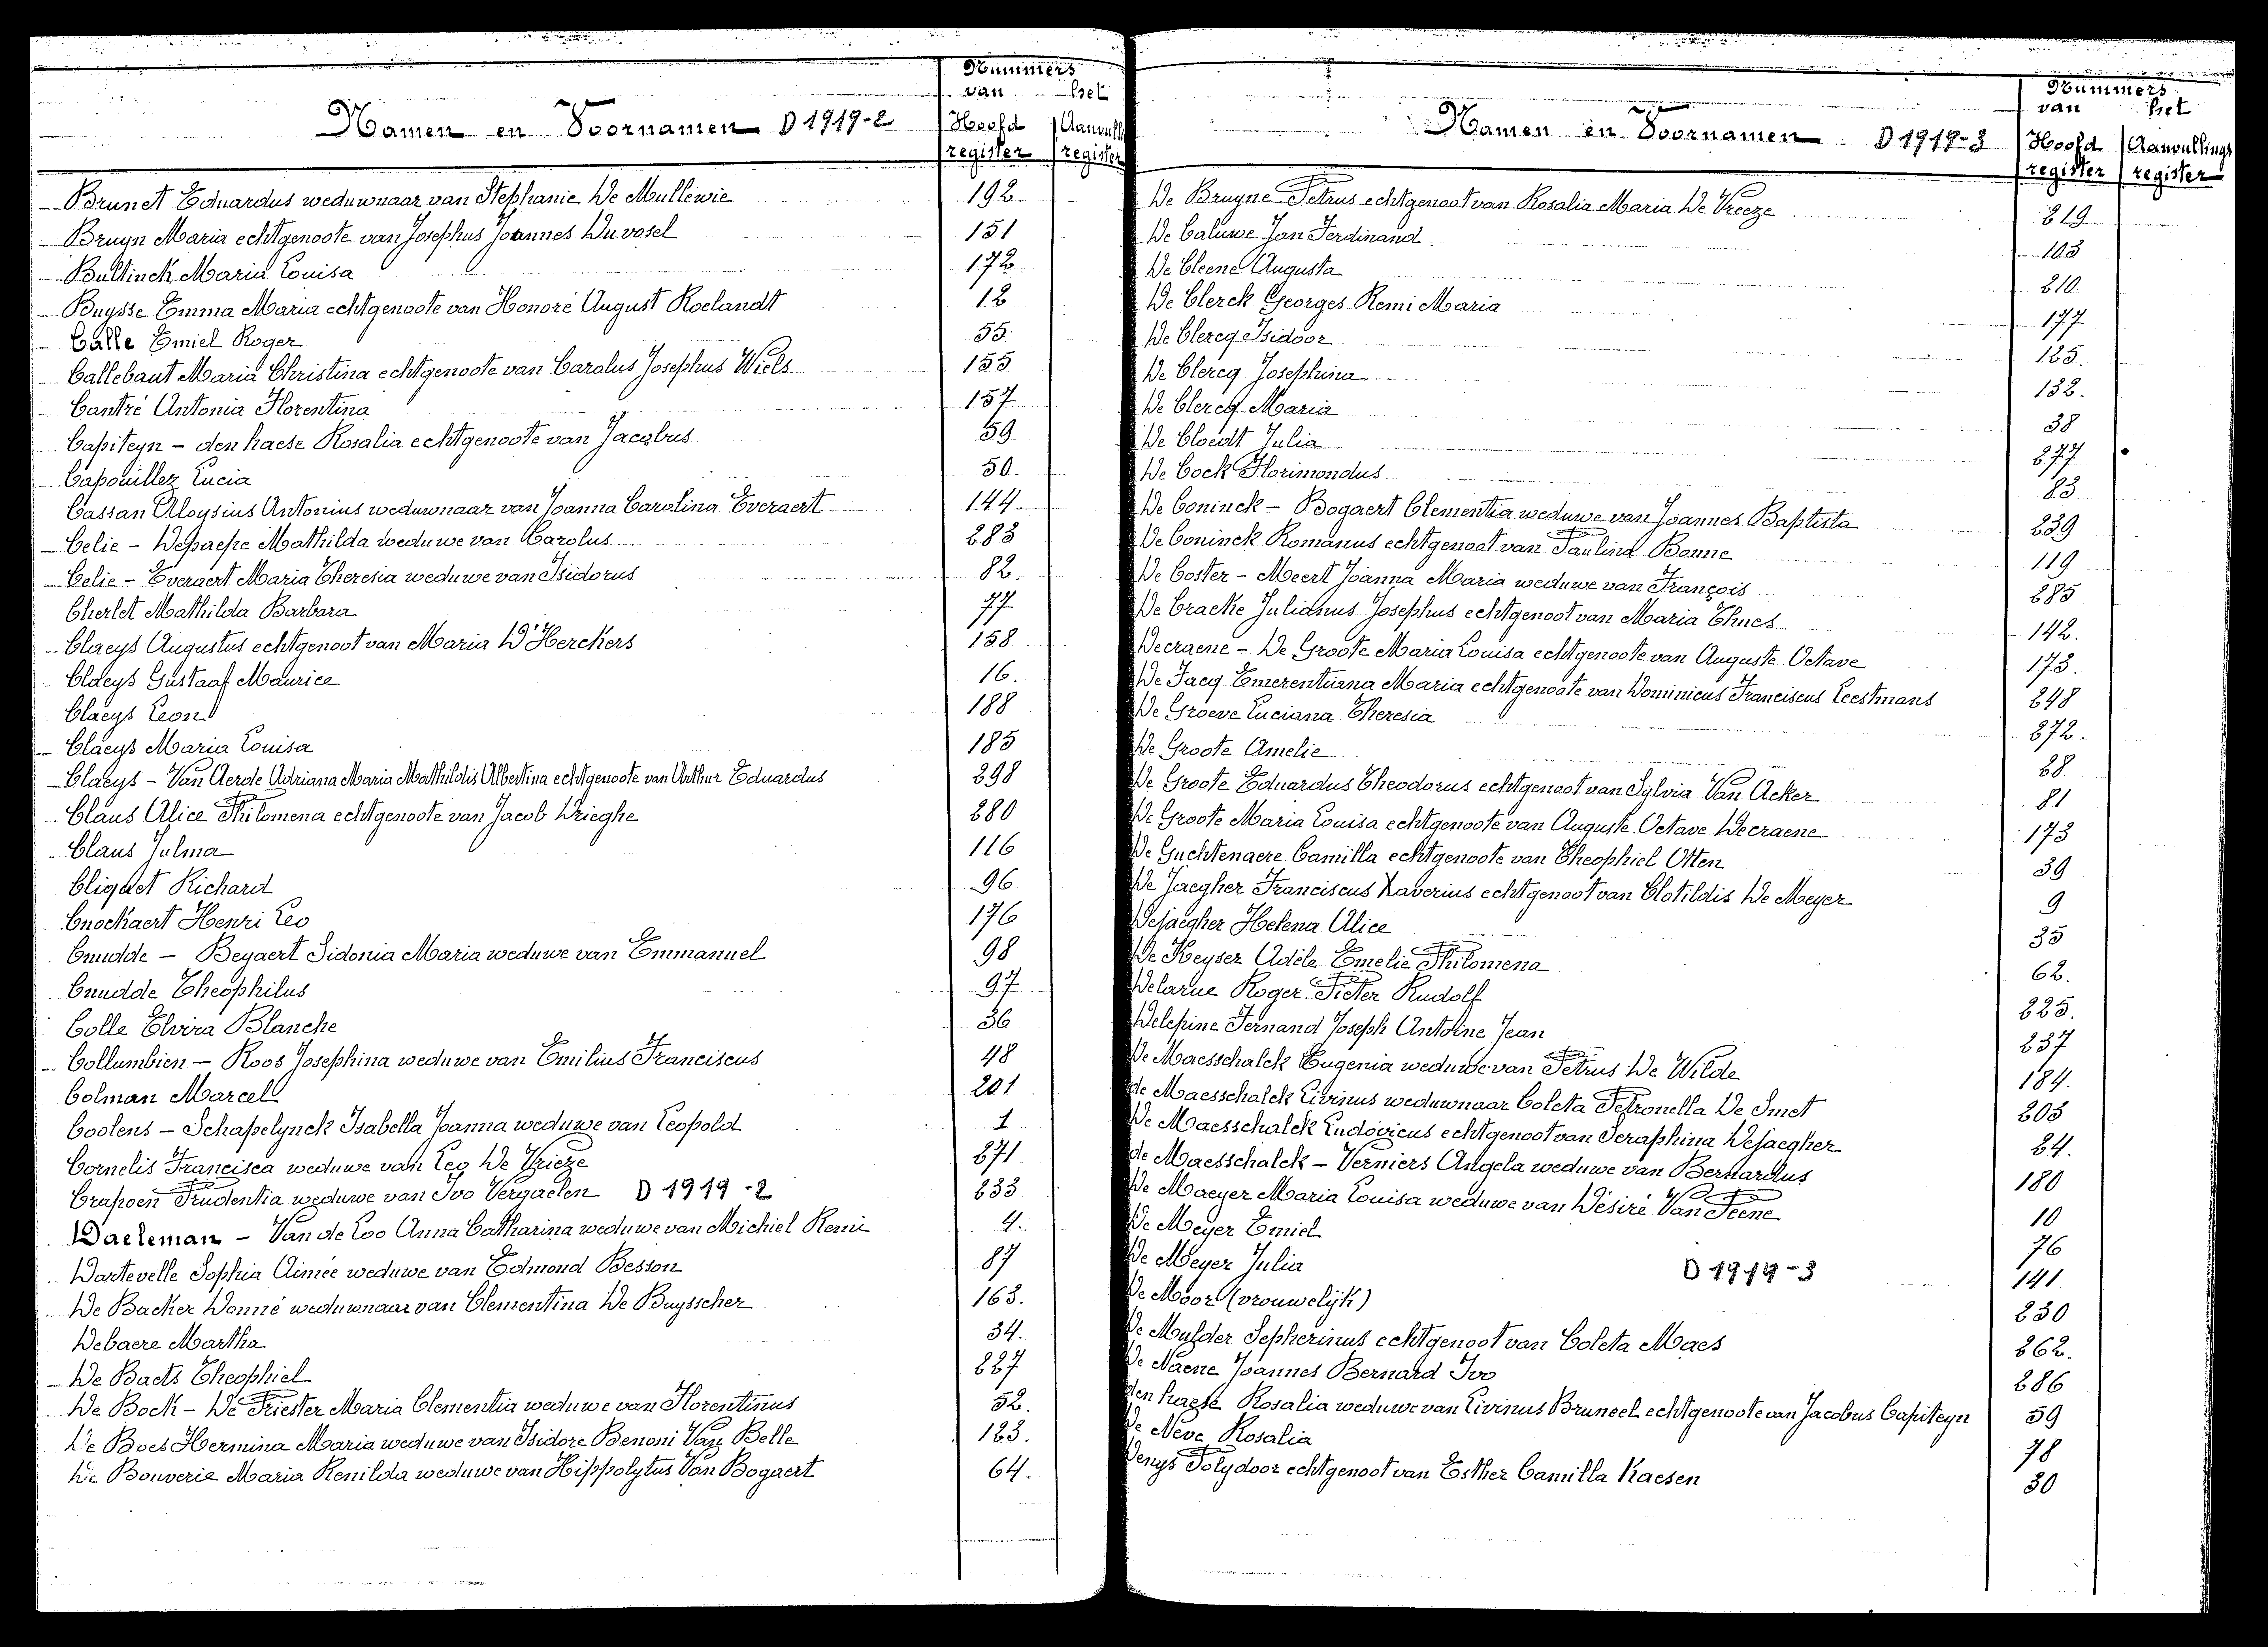 Nummers
van het
Namen en Voornamen D 1919-2
Hoofd register
Aanvull register
Brunet Eduardus weduwnaar van Stephanie De Mullewie 192
Bruyn Maria echtgenoote van Josephus Joannes Du vosel 151
Bultinck Maria Louisa 172
Buysse Emma Maria echtgenoote van Honoré August Roelandt 12
Calle Emiel Roger 55
Callebaut Maria Christina echtgenoote van Carolus Josephus Wiels 155
Cantré Antonia Florentina 157
Capiteyn - den haese Rosalia echtgenoote van Jacobus 59
Capouillez Lucia 50
Cassan Aloysius Antonius weduwnaar van Joanna Carolina Everaert 144
Celie - Depaepe Mathilda weduwe van Carolus 283
Celie - Everaert Maria Theresia weduwe van Isidorus 82
Cherlet Mathilda Barbara 77
Claeys Augustus echtgenoot van Maria D'Herckers 158
Claeys Gustaaf Maurice 16
Claeys Leon 188
Claeys Maria Louisa 185
Claeys - Van Aerde Adriana Maria Mathildis Albertina echtgenoote van Arthur Eduardus 298
Claus Alice Philomena echtgenoote van Jacob Drieghe 280
Claus Julma 116
Cliquet Richard 96
Cnockaert Henri Leo 176
Cnudde - Beyaert Sidonia Maria weduwe van Emmanuel 98
Cnudde Theophilus 97
Colle Elvira Blanche 36
Collumbien - Roos Josephina weduwe van Emilius Franciscus 48
Colman Marcel 201
Coolens - Schapelynck Isabella Joanna weduwe van Leopold 1
Cornelis Francisca weduwe van Leo De Vrieze 271
Crapoen Prudentia weduwe van Ivo Vergaelen D 1919-2 233
Daeleman - Van de Loo Anna Catharina weduwe van Michiel Remi 4
Dartevelle Sophia Aimée weduwe van Edmond Besson 87
De Backer Donné weduwnaar van Clementina De Buysscher 163
Debaere Martha 34
De Baets Theophiel 227
De Bock - De Priester Maria Clementia weduwe van Florentinus 52
De Boes Hermina Maria weduwe van Isidore Benoni Van Belle 123
De Bouverie Maria Renilda weduwe van Hippolytus Van Bogaert 64
Nummers
van het
Namen en Voornamen D 1919-3
Hoofd register
Aanvullings register
De Bruyne Petrus echtgenoot van Rosalia Maria De Vreeze 219
De Caluwe Jan Ferdinand 103
De Cleene Augusta 210
De Clerck Georges Remi Maria 177
De Clercq Isidoor 125
De Clercq Josephina 132
De Clercq Maria 38
De Cloedt Julia 277
De Cock Florimondus 23
De Coninck - Bogaert Clementia weduwe van Joannes Baptista 239
De Coninck Romanus echtgenoot van Paulina Bonne 119
De Coster - Meert Joanna Maria weduwe van François 285
De Cracke Julianus Josephus echtgenoot van Maria Thues 142
Decraene - De Groote Maria Louisa echtgenoote van Auguste Octave 173
De Jacq Emerentiana Maria echtgenoote van Dominicus Franciscus Leestmans 248
De Groeve Luciana Theresia 272
De Groote Amelie 28
De Groote Eduardus Theodorus echtgenoot van Sylvia Van Acker 81
De Groote Maria Louisa echtgenoote van Auguste Octave Decraene 173
De Guchtenaere Camilla echtgenoote van Theophiel Otten 39
De Jaegher Franciscus Xaverius echtgenoot van Clotildis De Meyer 9
Dejaegher Helena Alice 35
De Keyser Adèle Emelie Philomena 62
Delarue Roger Pieter Rudolf 225
Delepine Fernand Joseph Antoine Jean 237
De Maesschalck Eugenia weduwe van Petrus De Wilde 184
de Maesschalck Livinus weduwnaar Coleta Petronella De Smet 203
De Maesschalck Ludovicus echtgenoot van Seraphina Dejaegher 24
de Maesschalck - Verniers Angela weduwe van Bernardus 180
De Maeyer Maria Louisa weduwe van Désiré Van Peene 10
De Meyer Emiel 76
De Meyer Julia D 1919-3 141
De Moor (vrouwelijk) 230
De Mulder Sepherinus echtgenoot van Coleta Maes 262
De Naene Joannes Bernard Ivo 286
den haese Rosalia weduwe van Livinus Bruneel echtgenoote van Jacobus Capiteyn 59
De Neve Rosalia 78
Denys Polydoor echtgenoot van Esther Camilla Kaesen 30